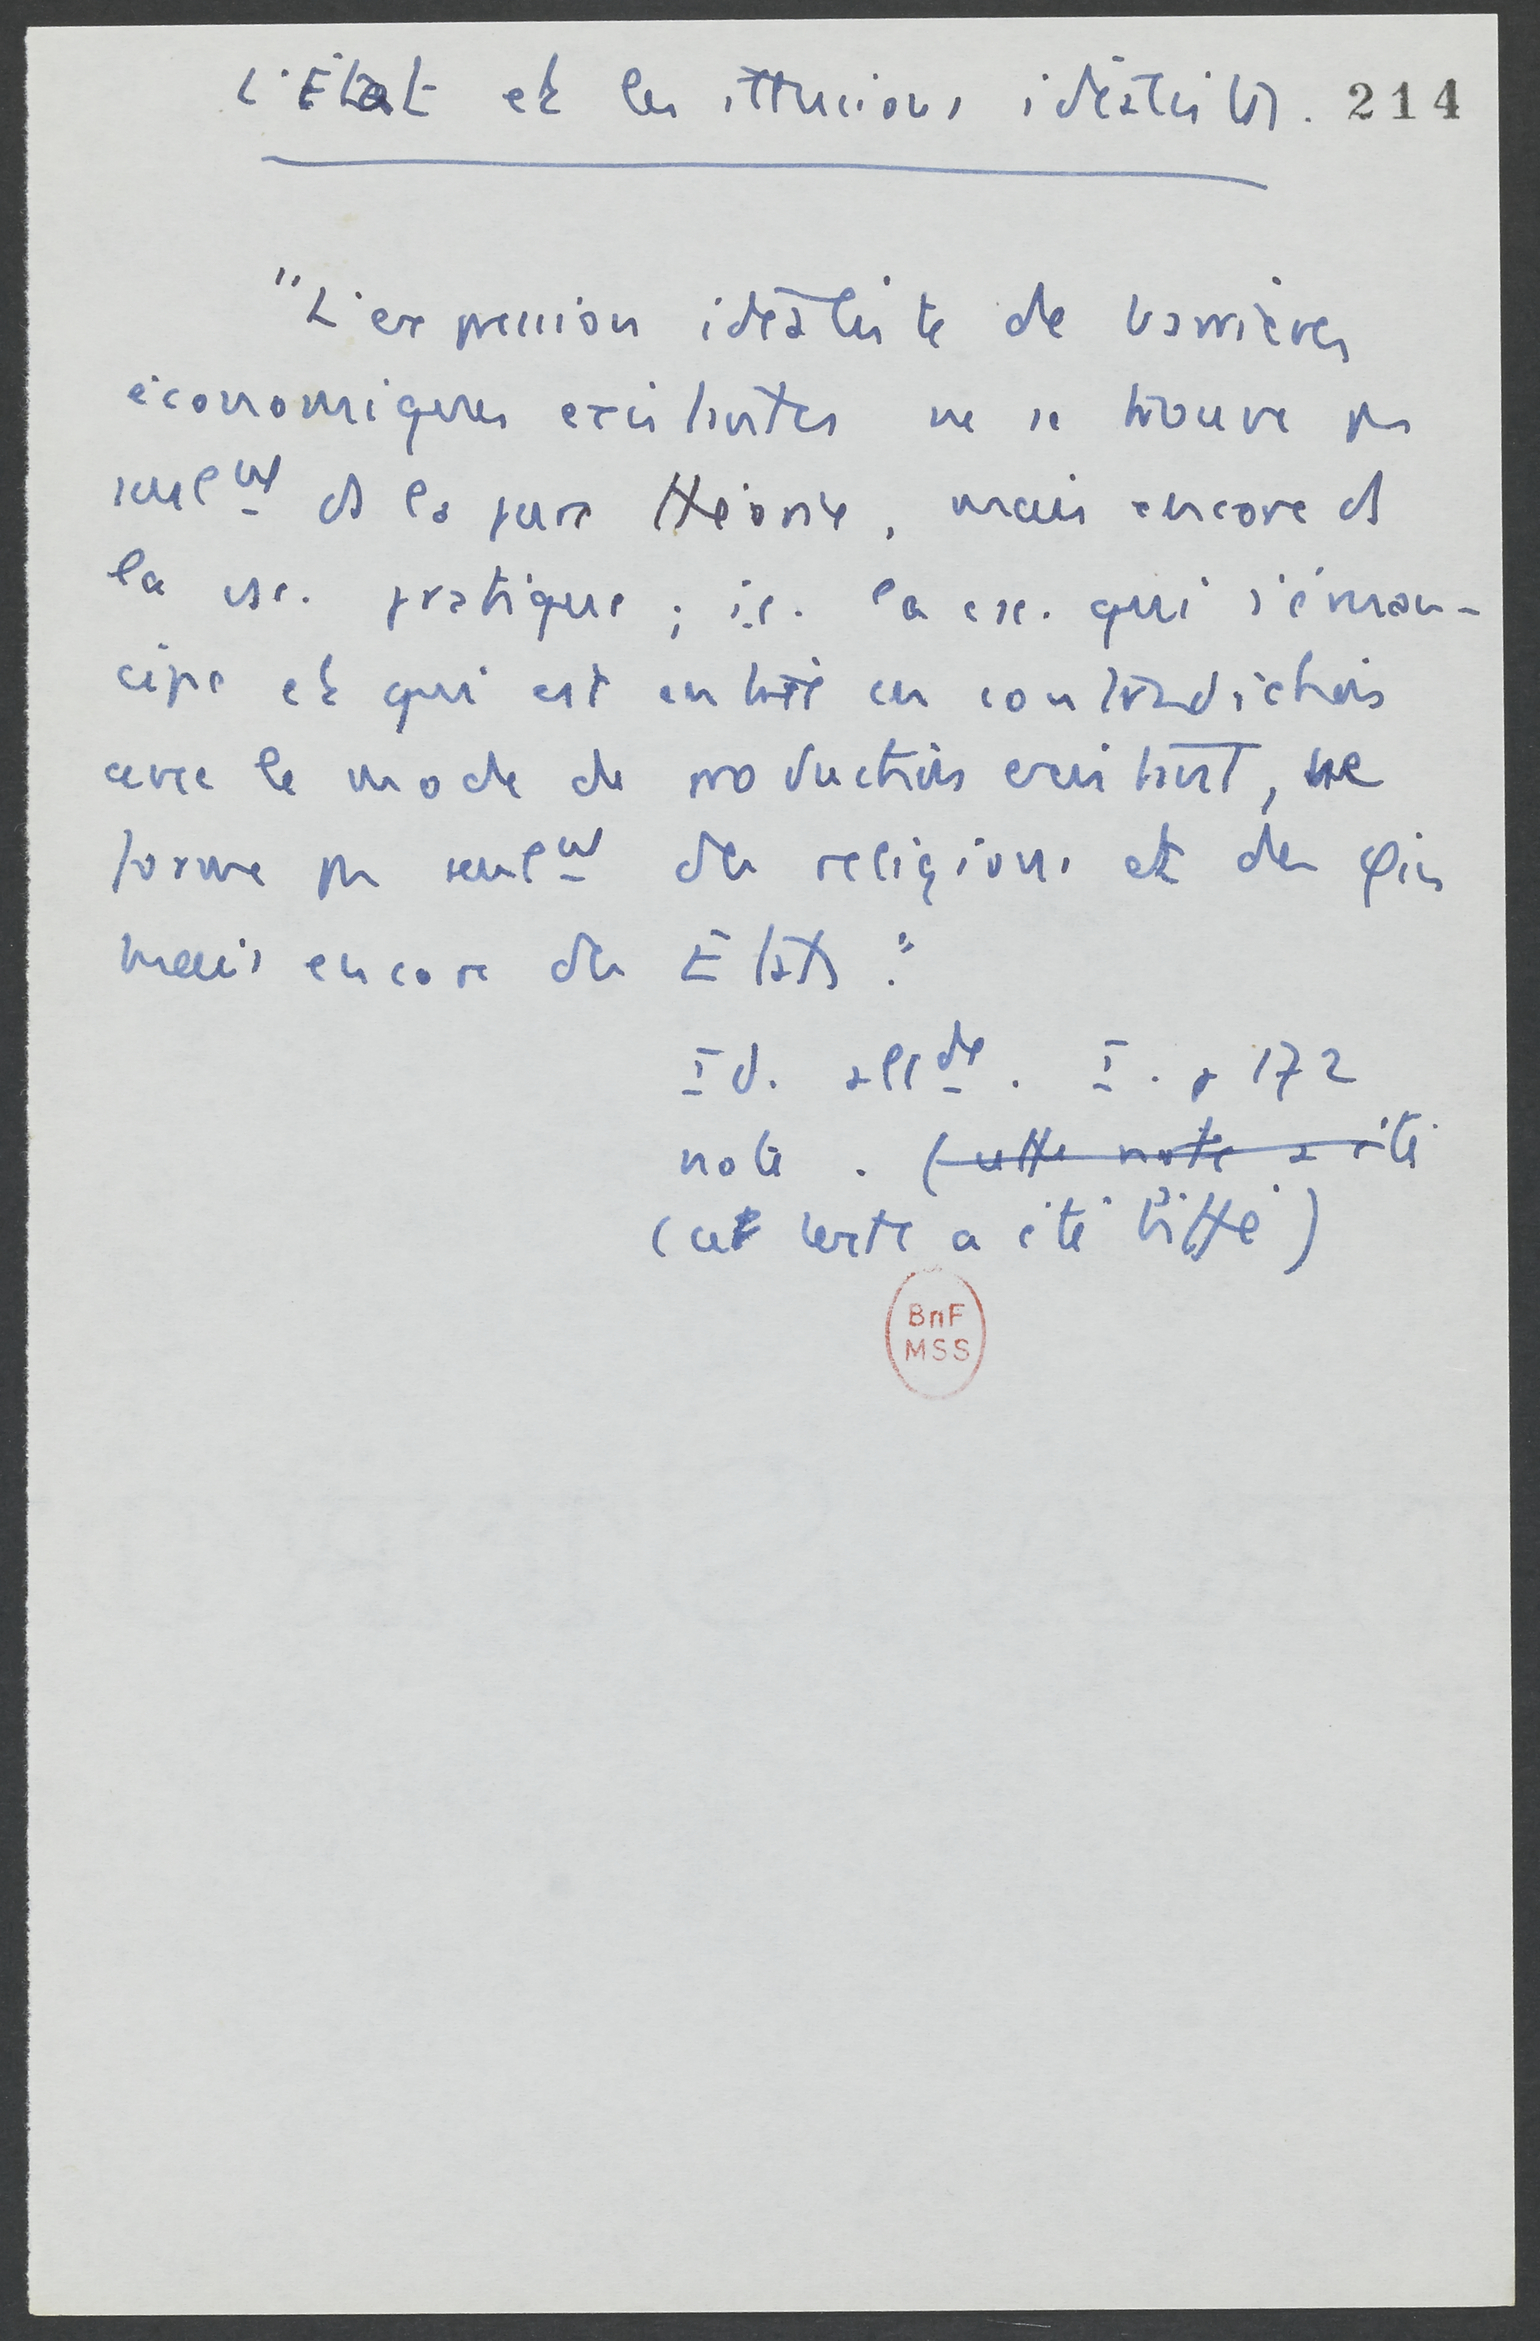 L'Etat et les illusions idéalistes. 214
"L'expression idéaliste de barrières
économiques existantes ne se trouve pas
seulemt ds la pure théorie, mais encore ds
la csc. pratique ; i.e. la csc. qui s'éman-
cipe et qui est entrée en contradiction
avec le mode de production existant, ne
forme pas seulemt des religions et des φies
mais encore des Etats."
Id. allde. I. p 172
note. (cette note a été
(ce texte a été biffé)
BnF
MSS